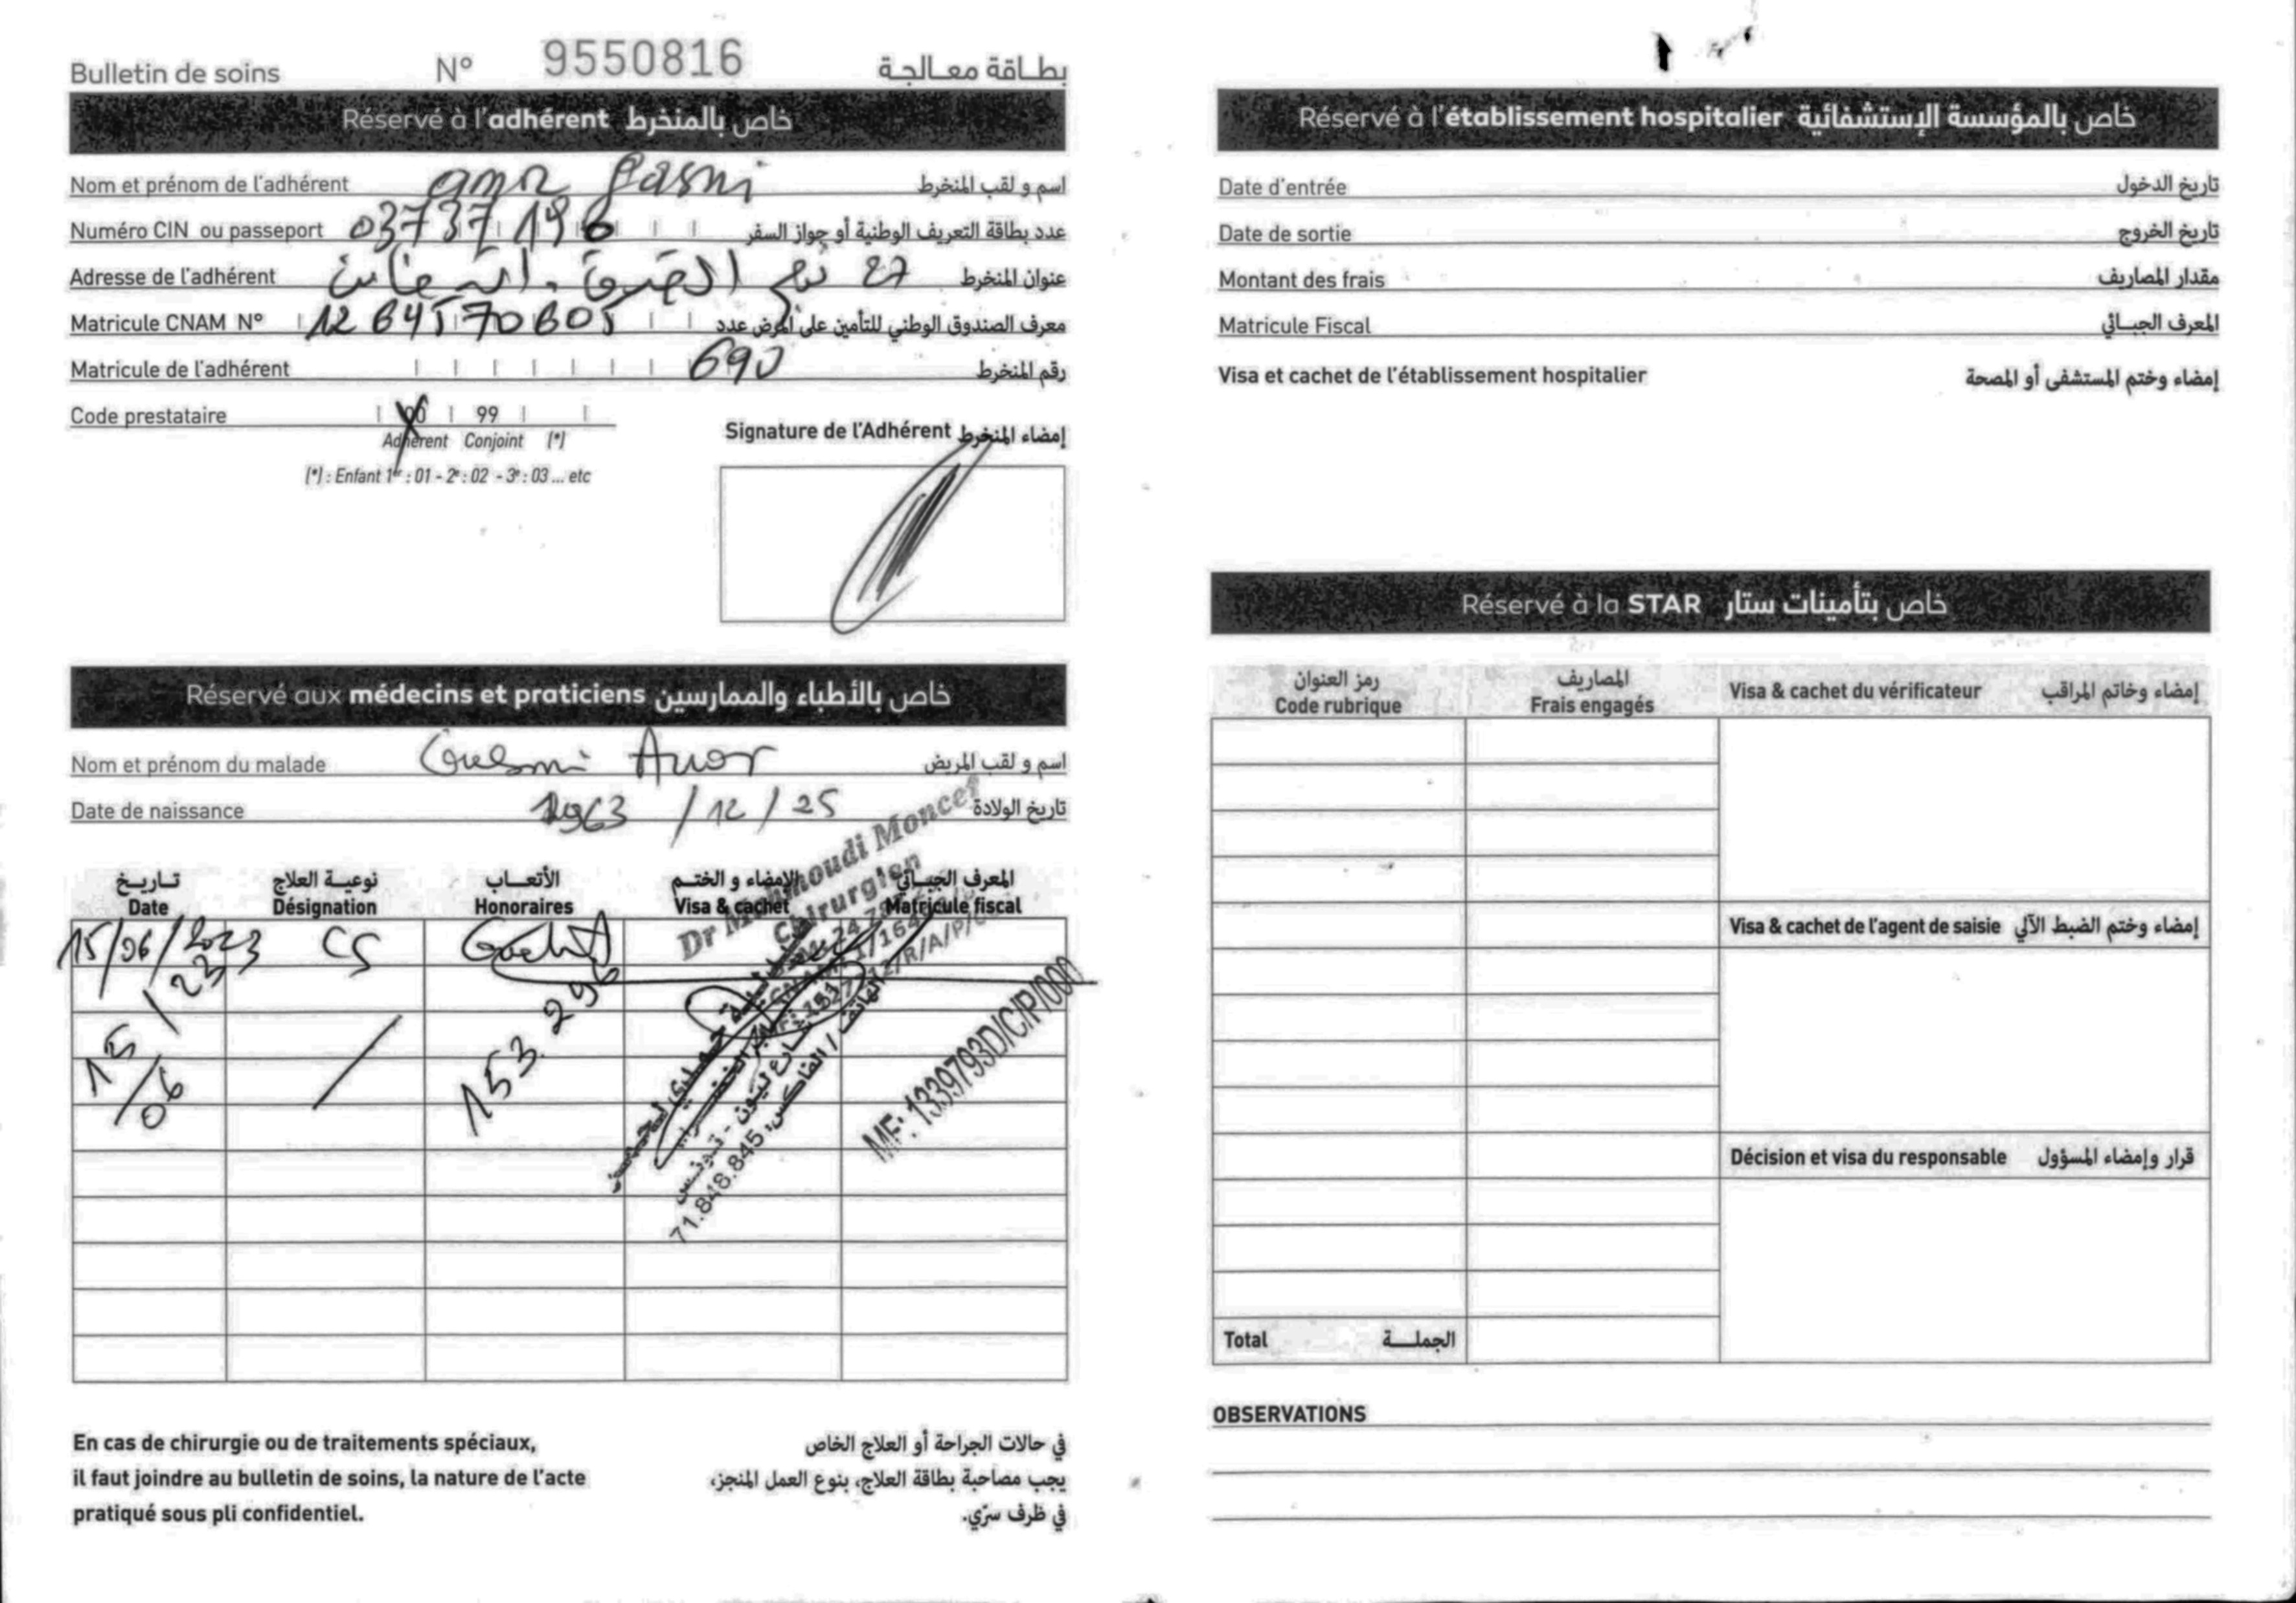 Bulletin de soins N° 9550816 بطاقة معالجة
Réservé à l'adhérent خاص بالمنخرط
Nom et prénom de l'adhérent اسم و لقب المنخرط
Numéro CIN ou passeport 03737196 عدد بطاقة التعريف الوطنية أو جواز السفر
Adresse de l'adhérent 27 نهج عنوان المنخرط
Matricule CNAM N° 1264570605 معرف الصندوق الوطني للتأمين على المرض عدد
Matricule de l'adhérent 690 رقم المنخرط
Code prestataire 00 99
Adhérent Conjoint (*)
(*) : Enfant 1er : 01 - 2e : 02 - 3e : 03 ... etc
Signature de l'Adhérent إمضاء المنخرط
Réservé aux médecins et praticiens خاص بالأطباء والممارسين
Nom et prénom du malade Guesmi Anor اسم و لقب المريض
Date de naissance 1963 / 12 / 25 تاريخ الولادة
تاريخ نوعية العلاج الأتعاب الإمضاء و الختم المعرف الجبائي
Date Désignation Honoraires Visa & cachet Matricule fiscal
Dr Mahmoudi Moncef
Chirurgien
15/06/2023 CS
15/06/23 153.296
شارع ليون - تونس
الهاتف / الفاكس: 71.848.845
MF: 1339793D/C/P/000
En cas de chirurgie ou de traitements spéciaux,
il faut joindre au bulletin de soins, la nature de l'acte
pratiqué sous pli confidentiel.
في حالات الجراحة أو العلاج الخاص
يجب مصاحبة بطاقة العلاج، بنوع العمل المنجز،
في ظرف سرّي.
Réservé à l'établissement hospitalier خاص بالمؤسسة الإستشفائية
Date d'entrée تاريخ الدخول
Date de sortie تاريخ الخروج
Montant des frais مقدار المصاريف
Matricule Fiscal المعرف الجبائي
Visa et cachet de l'établissement hospitalier إمضاء وختم المستشفى أو المصحة
Réservé à la STAR خاص بتأمينات ستار
رمز العنوان المصاريف
Code rubrique Frais engagés Visa & cachet du vérificateur إمضاء وخاتم المراقب
Visa & cachet de l'agent de saisie إمضاء وختم الضبط الآلي
Décision et visa du responsable قرار وإمضاء المسؤول
Total الجملة
OBSERVATIONS